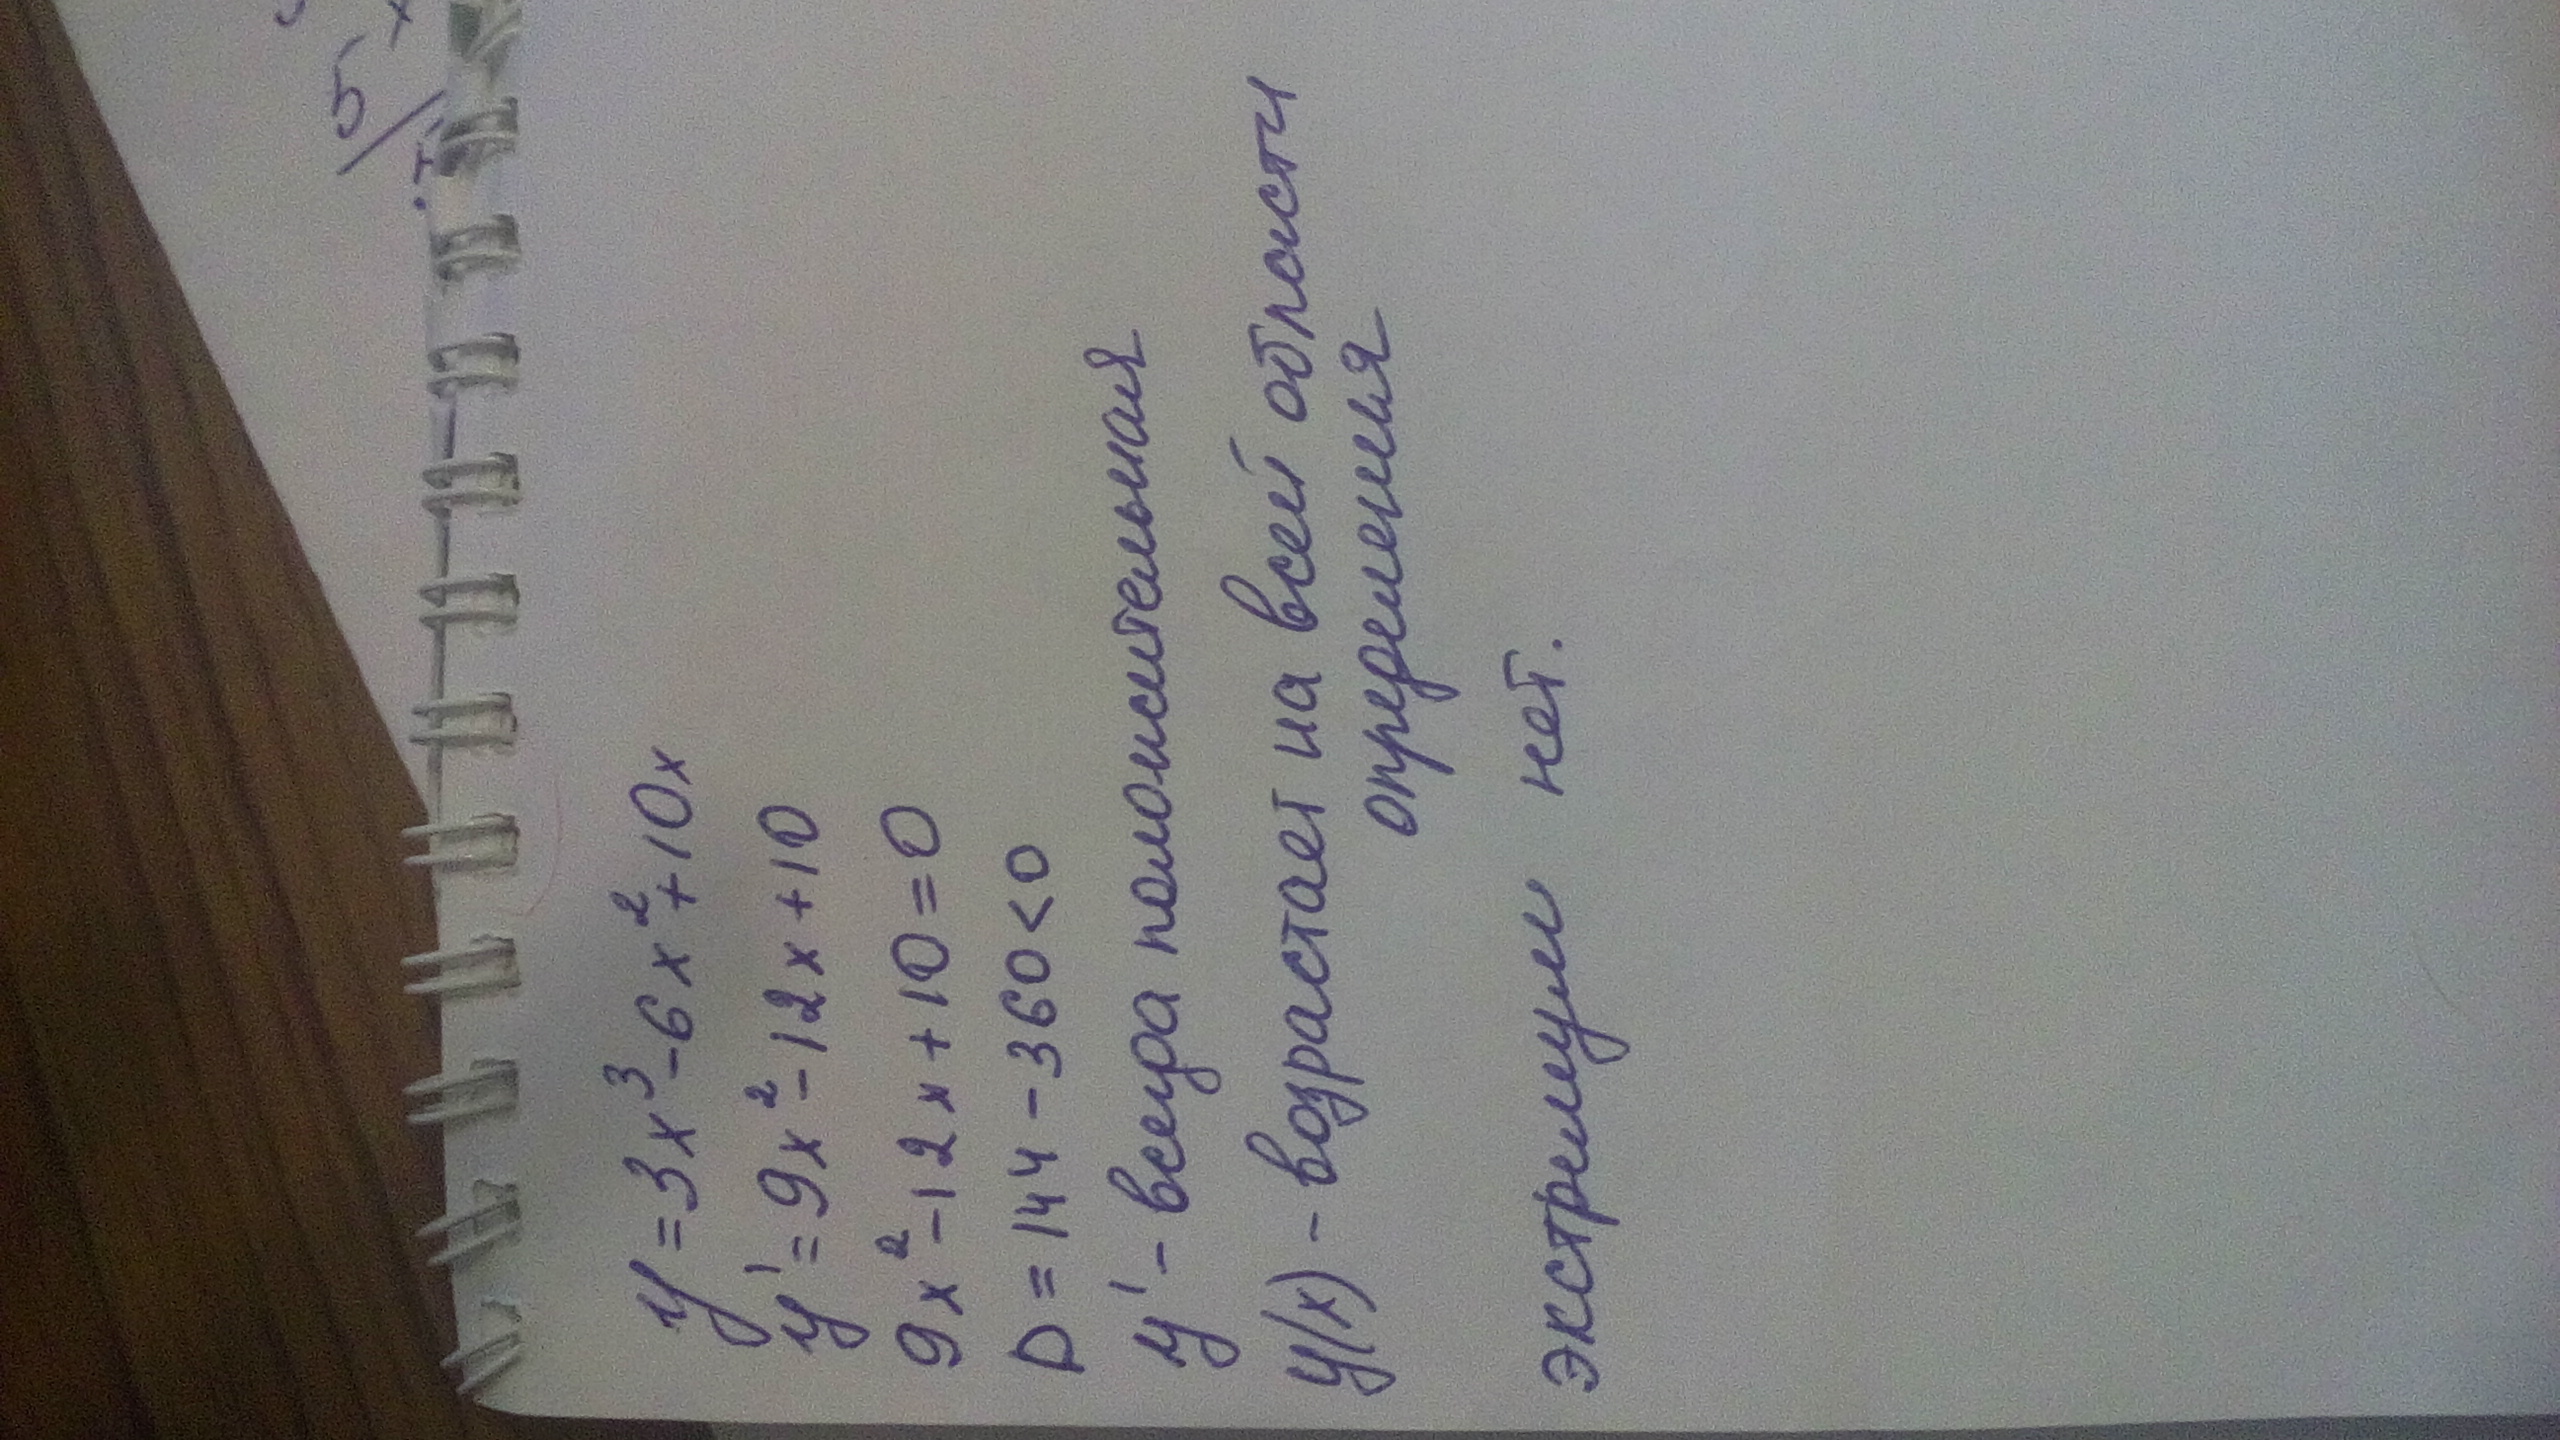 y = 3x³ - 6x² + 10x
y' = 9x² - 12x + 10
9x² - 12x + 10 = 0
D = 144 - 360 < 0
y' - всегда положительная
y(x) - возрастает на всей области
определения
экстремум нет.
5